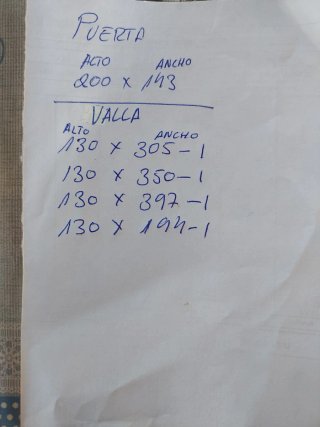 PUERTA
ALTO ANCHO
200 x 143
VALLA
ALTO ANCHO
130 x 305-1
130 x 350-1
130 x 397-1
130 x 194-1